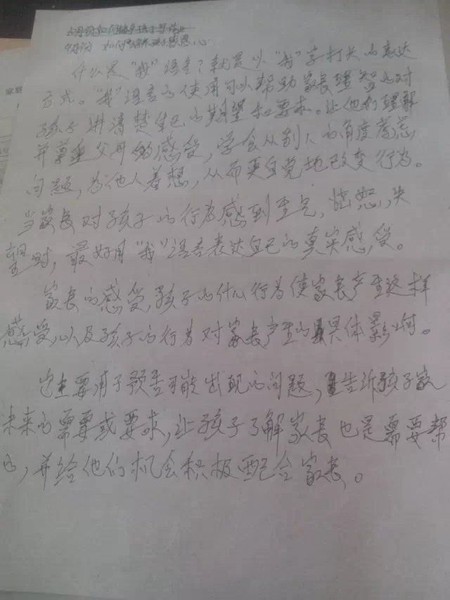 什么是"我"语言?就是以"我"字打头的表达
方式。"我"语言的使用可以帮助家长理智地对
孩子讲清楚自己的期望和要求。让他们理解
并尊重父母的感受,学会从别人的角度考虑
问题,为他人着想,从而更自觉地改变行为。
当家长对孩子的行为感到生气,恼怒,失
望时,最好用"我"语言表达自己的真实感受。
家长的感受,孩子的什么行为使家长产生这样
感受,以及孩子的行为对家长产生的具体影响。
主要用于预告可能出现的问题,告诉孩子家
未来的需要或要求,让孩子了解家长也是需要帮
,并给他们机会积极配合家长。